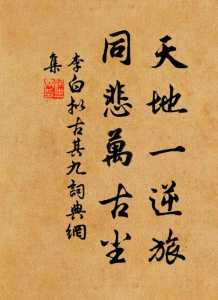 天地一逆旅
同悲萬古尘
李白拟古其九詞典網
集